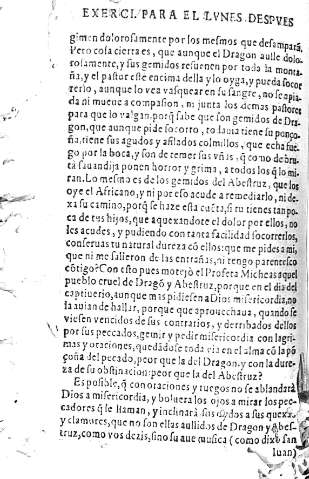 EXERCI. PARA EL LVNES DESPVES
gimen dolorosamente por los mesmos que desampara.
Pero cosa cierta es, que aunque el Dragon aulle dolo-
rosamente, y sus gemidos resuenen por toda la monta-
ña, y el pastor este encima della y lo oyga, y pueda socor
rerlo, aunque lo vea vasquear en su sangre, no se apia-
da ni mueue a compasion, ni junta los demas pastores
para que lo valgan, porq̃ sabe que son gemidos de Dra-
gon, que aunque pide socorro, todauia tiene su ponço-
ña, tiene sus agudos y afilados colmillos, que echa fue-
go por la boca, y son de temer sus vñas, q̃ como de bru-
ta sauandija ponen horror y grima, a todos los q̃ lo mi
ran. Lo mesmo es de los gemidos del Abestruz, que los
oye el Africano, y ni por eso acude a remediarlo, ni de-
xa su camino, porq̃ se haze esta cuẽta, si tu tienes tan po-
ca de tus hijos, que aquexandote el dolor por ellos, no
les acudes, y pudiendo con tanta facilidad socorrerlos,
conseruas tu natural dureza cõ ellos: que me pides a mi,
que ni me salieron de las entrañas, ni tengo parentesco
cõtigo? Con esto pues motejò el Profeta Micheas aquel
pueblo cruel de Dragõ y Abestruz, porque en el dia del
captiuerio, aunque mas pidiessen a Dios misericordia, no
la auian de hallar, porque que aprouechaua, quando se
viesen vencidos de sus contrarios, y derribados dellos
por sus peccados, gemir y pedir misericordia con lagri-
mas y oraciones, quedãdose toda via en el alma cõ la põ
çoña del pecado, peor que la del Dragon, y con la dure-
za de su obstinacion: peor que la del Abestruz?
Es posible, q̃ con oraciones y ruegos no se ablandarà
Dios a misericordia, y boluera los ojos a mirar los pec-
cadores q̃ le llaman, y inclinarà sus oydos a sus quexas
y clamores, que no son ellas aullidos de Dragon y q̃ bes-
truz, como vos dezis, sino suaue musica (como dixo san
Iuan)